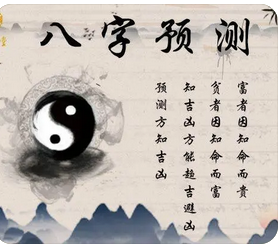 八字预测
富者因知命而贵
贫者因知命而富
知吉凶方能趋吉避凶
预测方知吉凶